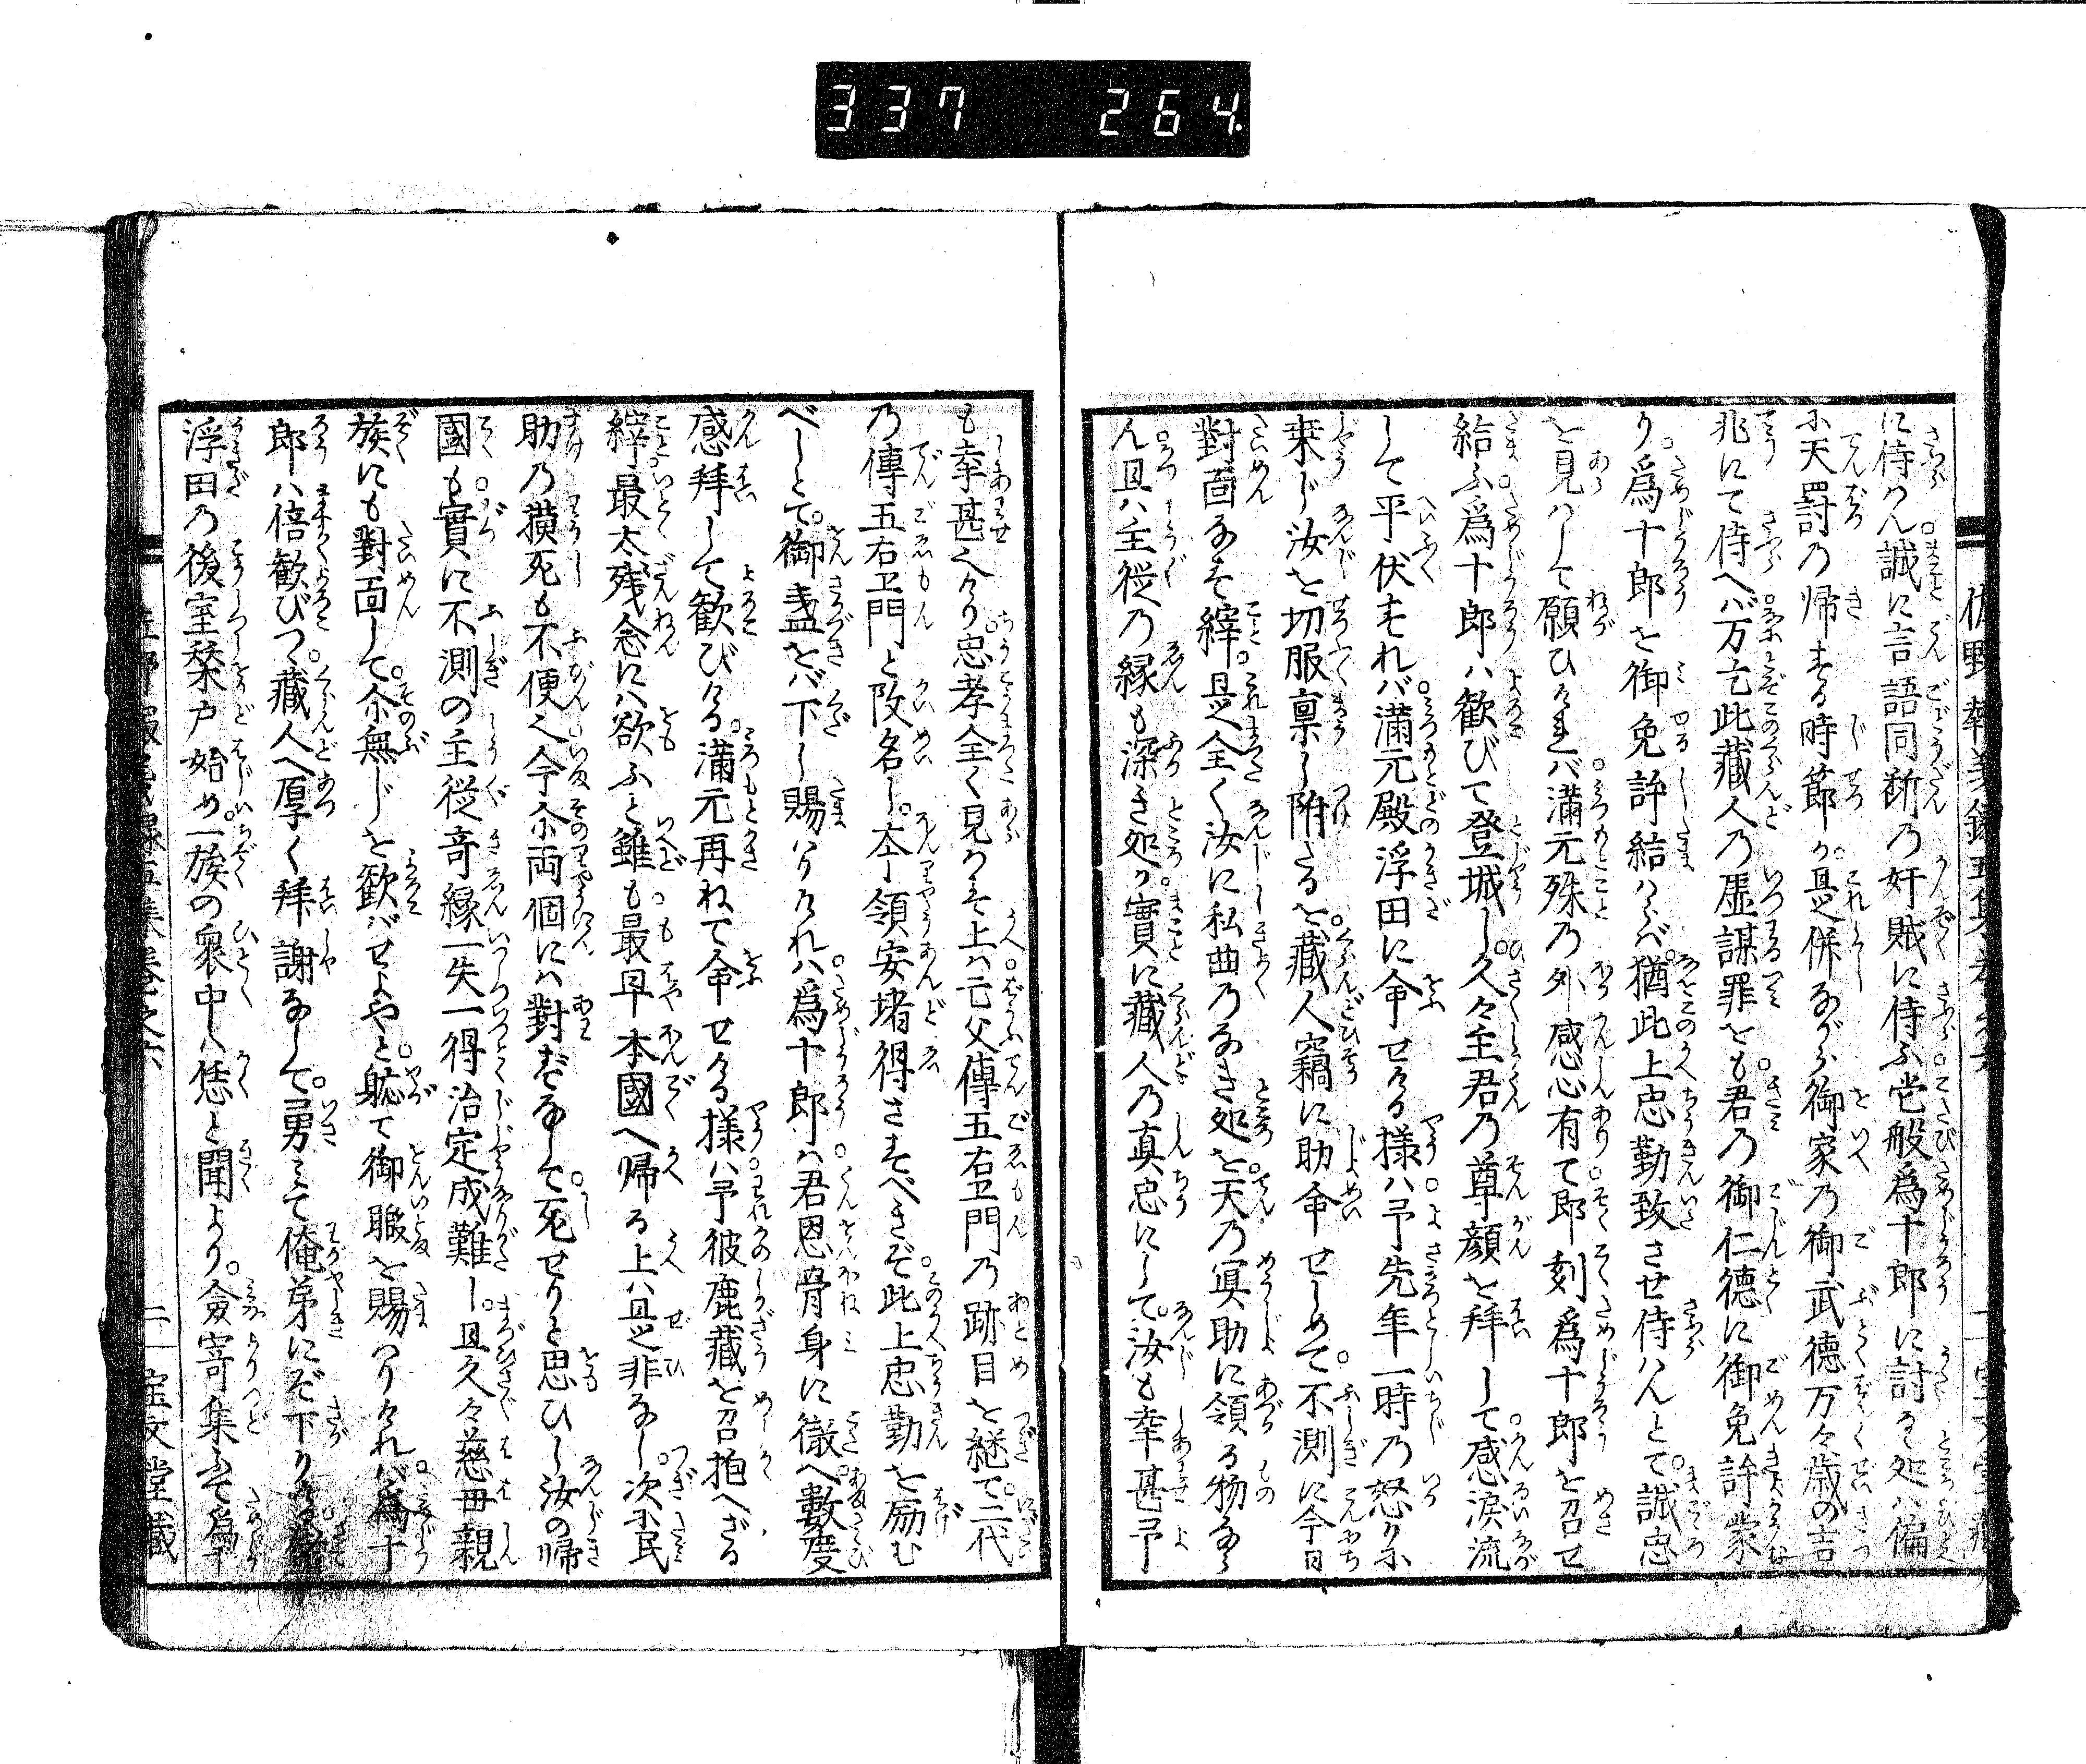 337 264
に侍らん誠に言語同断乃奸賊に侍ふ它般爲十郎に討るゝ処ハ偏
に天罸乃帰する時節か是併ながら御家乃御武徳万々歳の吉
兆にて侍へバ万乞此藏人乃虚謀罪をも君乃御仁徳に御免許蒙
り爲十郎を御免許給ハらバ猶此上忠勤致させ侍ハんとて誠忠
を見ハして願ひけれバ満元殊乃外感心有て即刻爲十郎を召せ
給ふ爲十郎ハ歓びて登城し久々主君乃尊顔を拝して感涙流
して平伏すれバ満元殿浮田に命せける様ハ予先年一時乃怒りに
乗じ汝を切服禀し附たるを藏人竊に助命せしめて不測に今日
對面なす縡是全く汝に私曲乃なき処を天乃冥助に領る物なら
ん且ハ主従乃縁も深き処か實に藏人乃真忠にして汝も幸甚予
も幸甚へり忠孝全く見ゆる上ハ亡父傳五右卫門乃跡目を継で二代
乃傳五右卫門と改名し本領安堵得さすべきぞ此上忠勤を励む
べしとて御盞をバ下し賜ハりけれハ爲十郎ハ君恩骨身に徹へ數度
感拜して歓びける満元再ねて命せける様ハ予彼鹿藏を召抱へざる
縡最太残念にハ欲ふと雖も最早本國へ帰る上ハ是非なし次に民
助乃横死も不便へ今尒両個にハ對だなして死せりと思ひし汝の帰
國も實に不測の主従竒縁一失一得治定成難し且久々慈毋親
族にも對面して尒無じを歓バせよやと躮て御暇を賜ハりけれバ爲十
郎ハ倍歓びつ藏人へ厚く拜謝なして勇ミて俺第にぞ下りける
浮田乃後室桒戸始め一族の衆中ハ恁と聞より僉寄集ふて爲十
二 宝文堂藏